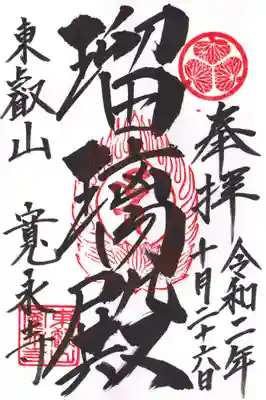 奉拝
令和二年
十月二十六日
瑠璃殿
東叡山
寛永寺